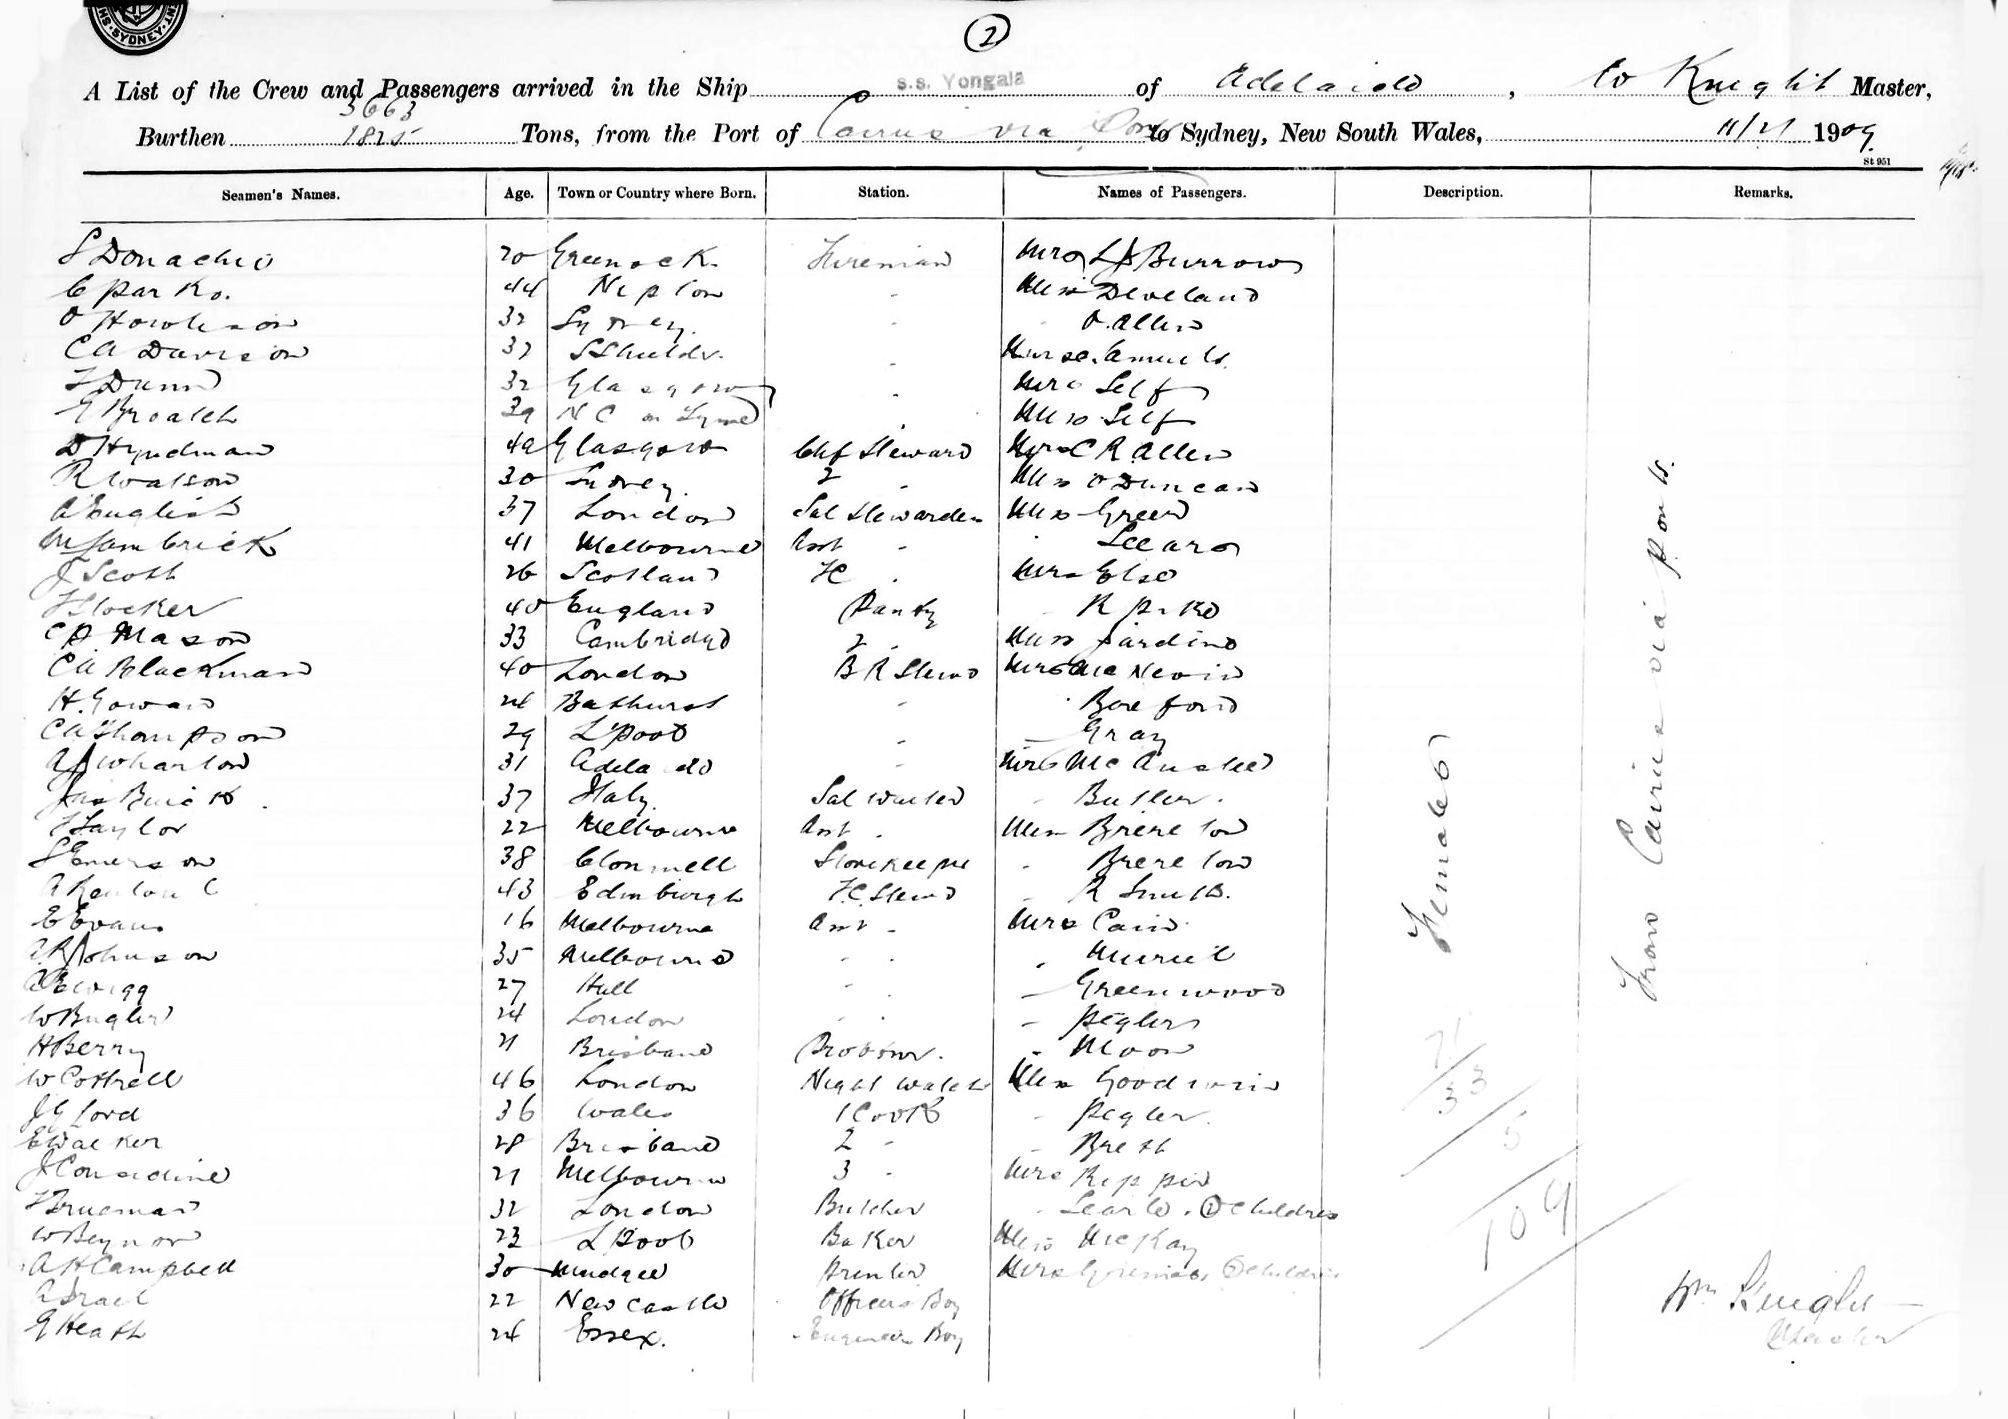 SYDNEY
2
A List of the Crew and Passengers arrived in the Ship s.s. Yongala of Adelaide, W Knight Master,
3663
Burthen 1825 Tons, from the Port of Cairns via Ports to Sydney, New South Wales, 11/21 1909
St 951
Seamen's Names. Age. Town or Country where Born. Station. Names of Passengers. Description. Remarks.
S Donachie 20 Greenock Fireman Mrs Burrows
C Parke. 44 Nipton - Miss Develand
O Howieson 32 Sydney. - - O. Allen
CA Davison 37 S Shields. - Nurse Samuels.
T Dunn 32 Glasgow - Mrs Self
G Broatch 39 N C on Lyme - Miss Self
D Hyndman 49 Glasgow Chf Steward Mrs C R Allen
R Watson 30 Sydney. 2 - Miss O Duncan
A English 37 London Sal Stewardess Miss Green
M Lambrick 41 Melbourne Asst - - Seears
J Scott 26 Scotland FC - Mrs Else
T Stocker 40 England Pantry - R Pike
C P Mason 33 Cambridge 2 - Miss Jardine
CA Blackman 40 London B R Stewd Mrs McNevin
H. Goward 24 Bathurst - - Bereford
CA Thompson 29 L'pool - - Gray
A J Wharton 31 Adelaide - Mrs McAusled
Jas Buick. 37 Italy. Sal Waiter - Butler.
T Taylor 22 Melbourne Asst - Miss Brereton
S Emerson 38 Clonmell Storekeeper - Brereton
A Renton C 43 Edinburgh FC. Stewd - R Smith.
E Evans 16 Melbourne Asst - Mrs Cain.
A R Johnson 35 Melbourne - - - Muriel
A E Wigg 27 Hull - - - Greenwood
W Bugler 24 London - - - Pegler
H Berry 21 Brisbane - Moon
W Cottrell 46 London Night Watch Miss Goodwin
J G Lord 36 Wales 1 Cook - Pegler.
E Walker 28 Brisbane 2 - - Brett
J Considine 21 Melbourne 3 - Mrs Rippin
T Trueman 32 London Butcher - Searle. 2 Children
W Beynon 23 L Pool Baker Miss McKay
A H Campbell 30 Mudgee Printer Mrs Children
A Israel 22 Newcastle Officers Boy
G Heath 24 Essex. Engineers Boy
Females
71
33
5
109
From Cairns via Ports.
Wm Knight
Master